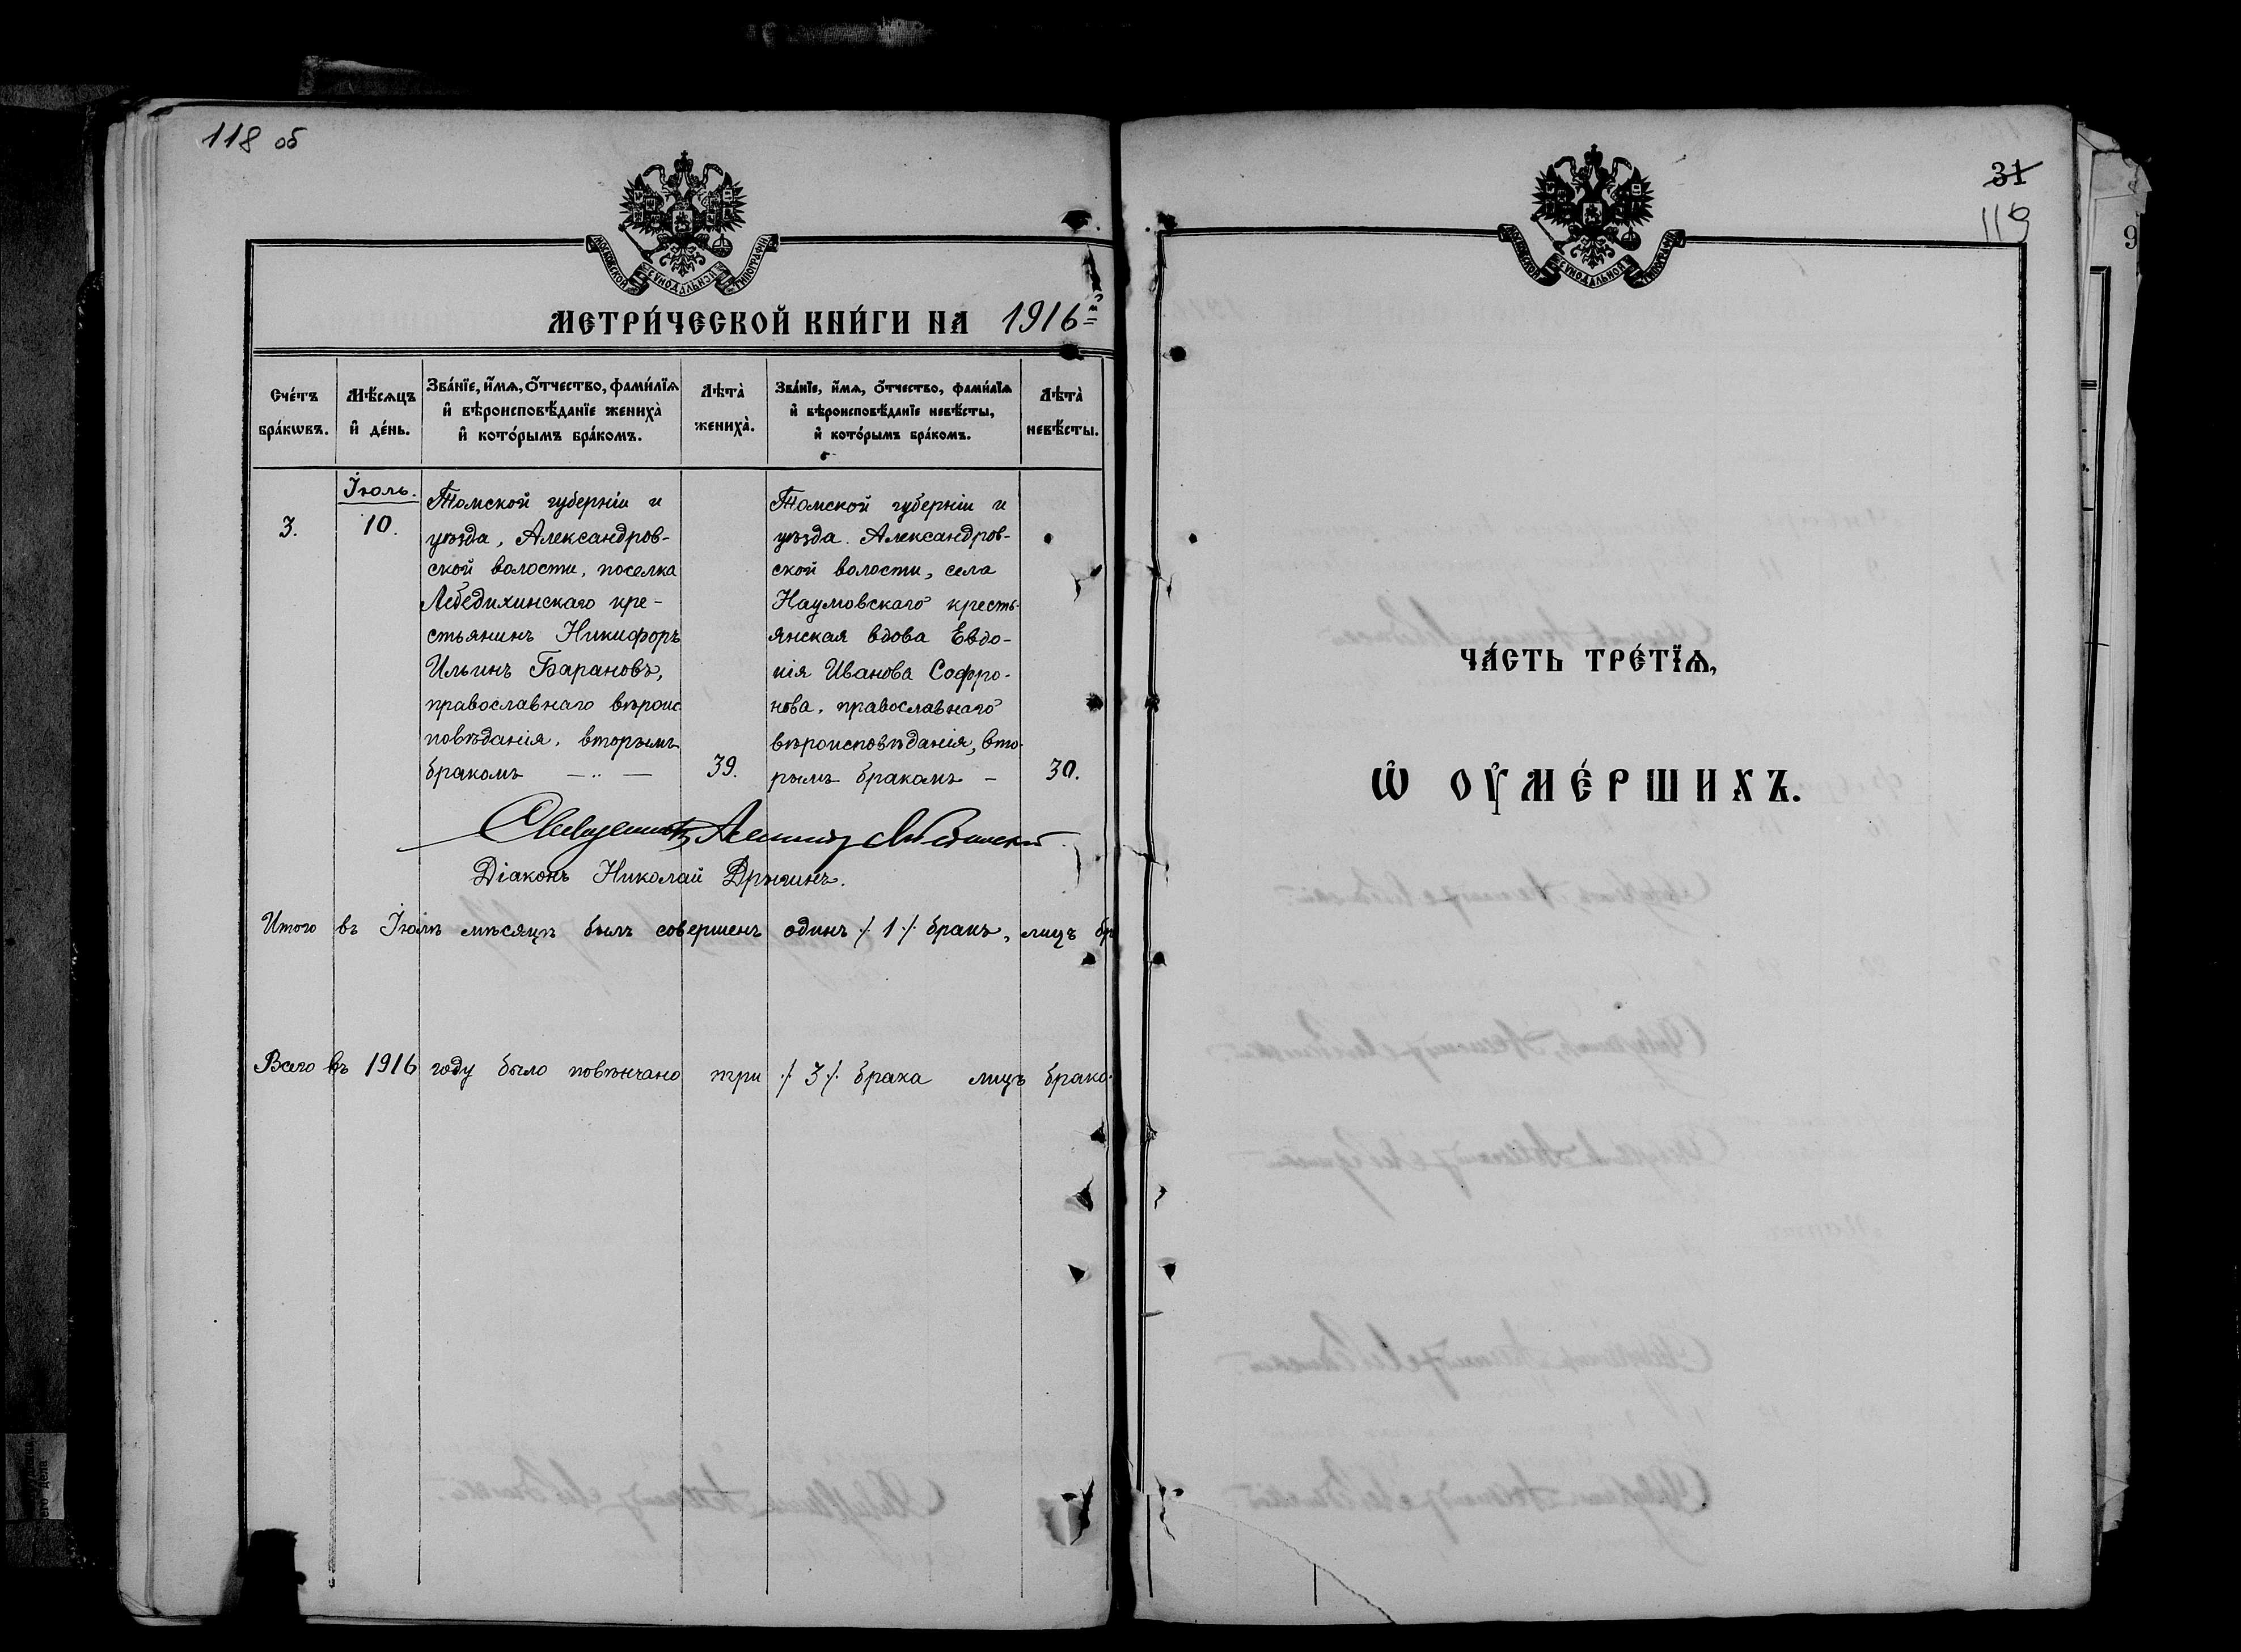 118 об
МОСКОВСКОЙ СѴНОДАЛЬНОЙ ТИПОГРАФІИ
МЕТРИ́ЧЕСКОЙ КНИ́ГИ НА 1916 г
Сче́тъ бра́кѡвъ.
Мѣ́сѧцъ и҆ де́нь.
Зва́нїе, и҆́мѧ, ѻ҆́тчество, фами́лїѧ
и҆ вѣроисповѣ́данїе жениха̀
и҆ кото́рымъ бра́комъ.
Лѣта̀ жениха̀.
Зва́нїе, и҆́мѧ, ѻ҆́тчество, фами́лїѧ
и҆ вѣроисповѣ́данїе невѣ́сты,
и҆ кото́рымъ бра́комъ.
Лѣта̀ невѣ́сты.
3.
Іюль.
10.
Томской губерніи и
уѣзда, Александров-
ской волости, поселка
Лебедихинскаго кре-
стьянинъ Никифоръ
Ильинъ Барановъ,
православнаго вѣроис
повѣданія, вторымъ
бракомъ
39.
Томской губерніи и
уѣзда. Александров-
ской волости, села
Наумовскаго кресть-
янская вдова Евдо-
кія Иванова Софро-
нова, православнаго
вѣроисповѣданія, вто-
рымъ бракомъ –
30.
Діаконъ Николай
Итого въ Іюлѣ мѣсяцѣ былъ совершенъ одинъ /1/ бракъ, лицъ бр
Всего въ 1916 году было повѣнчано три /3/ брака лицъ брако-
31
119
МОСКОВСКОЙ СѴНОДАЛЬНОЙ ТИПОГРАФІИ
ЧА́СТЬ ТРЕ́ТЇѦ,
Ѡ҆ ОУ҆МЕ́РШИХЪ.